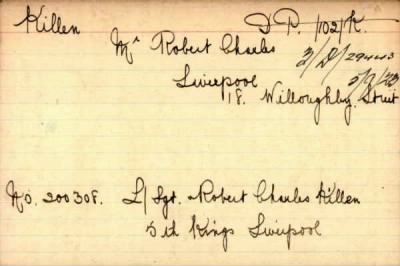 Killen
D.P. /102/K.
Mr Robert Charles
Liverpool
18. Willoughby Street
No. 200308. L/Sgt. Robert Charles Killen
5th Kings Liverpool